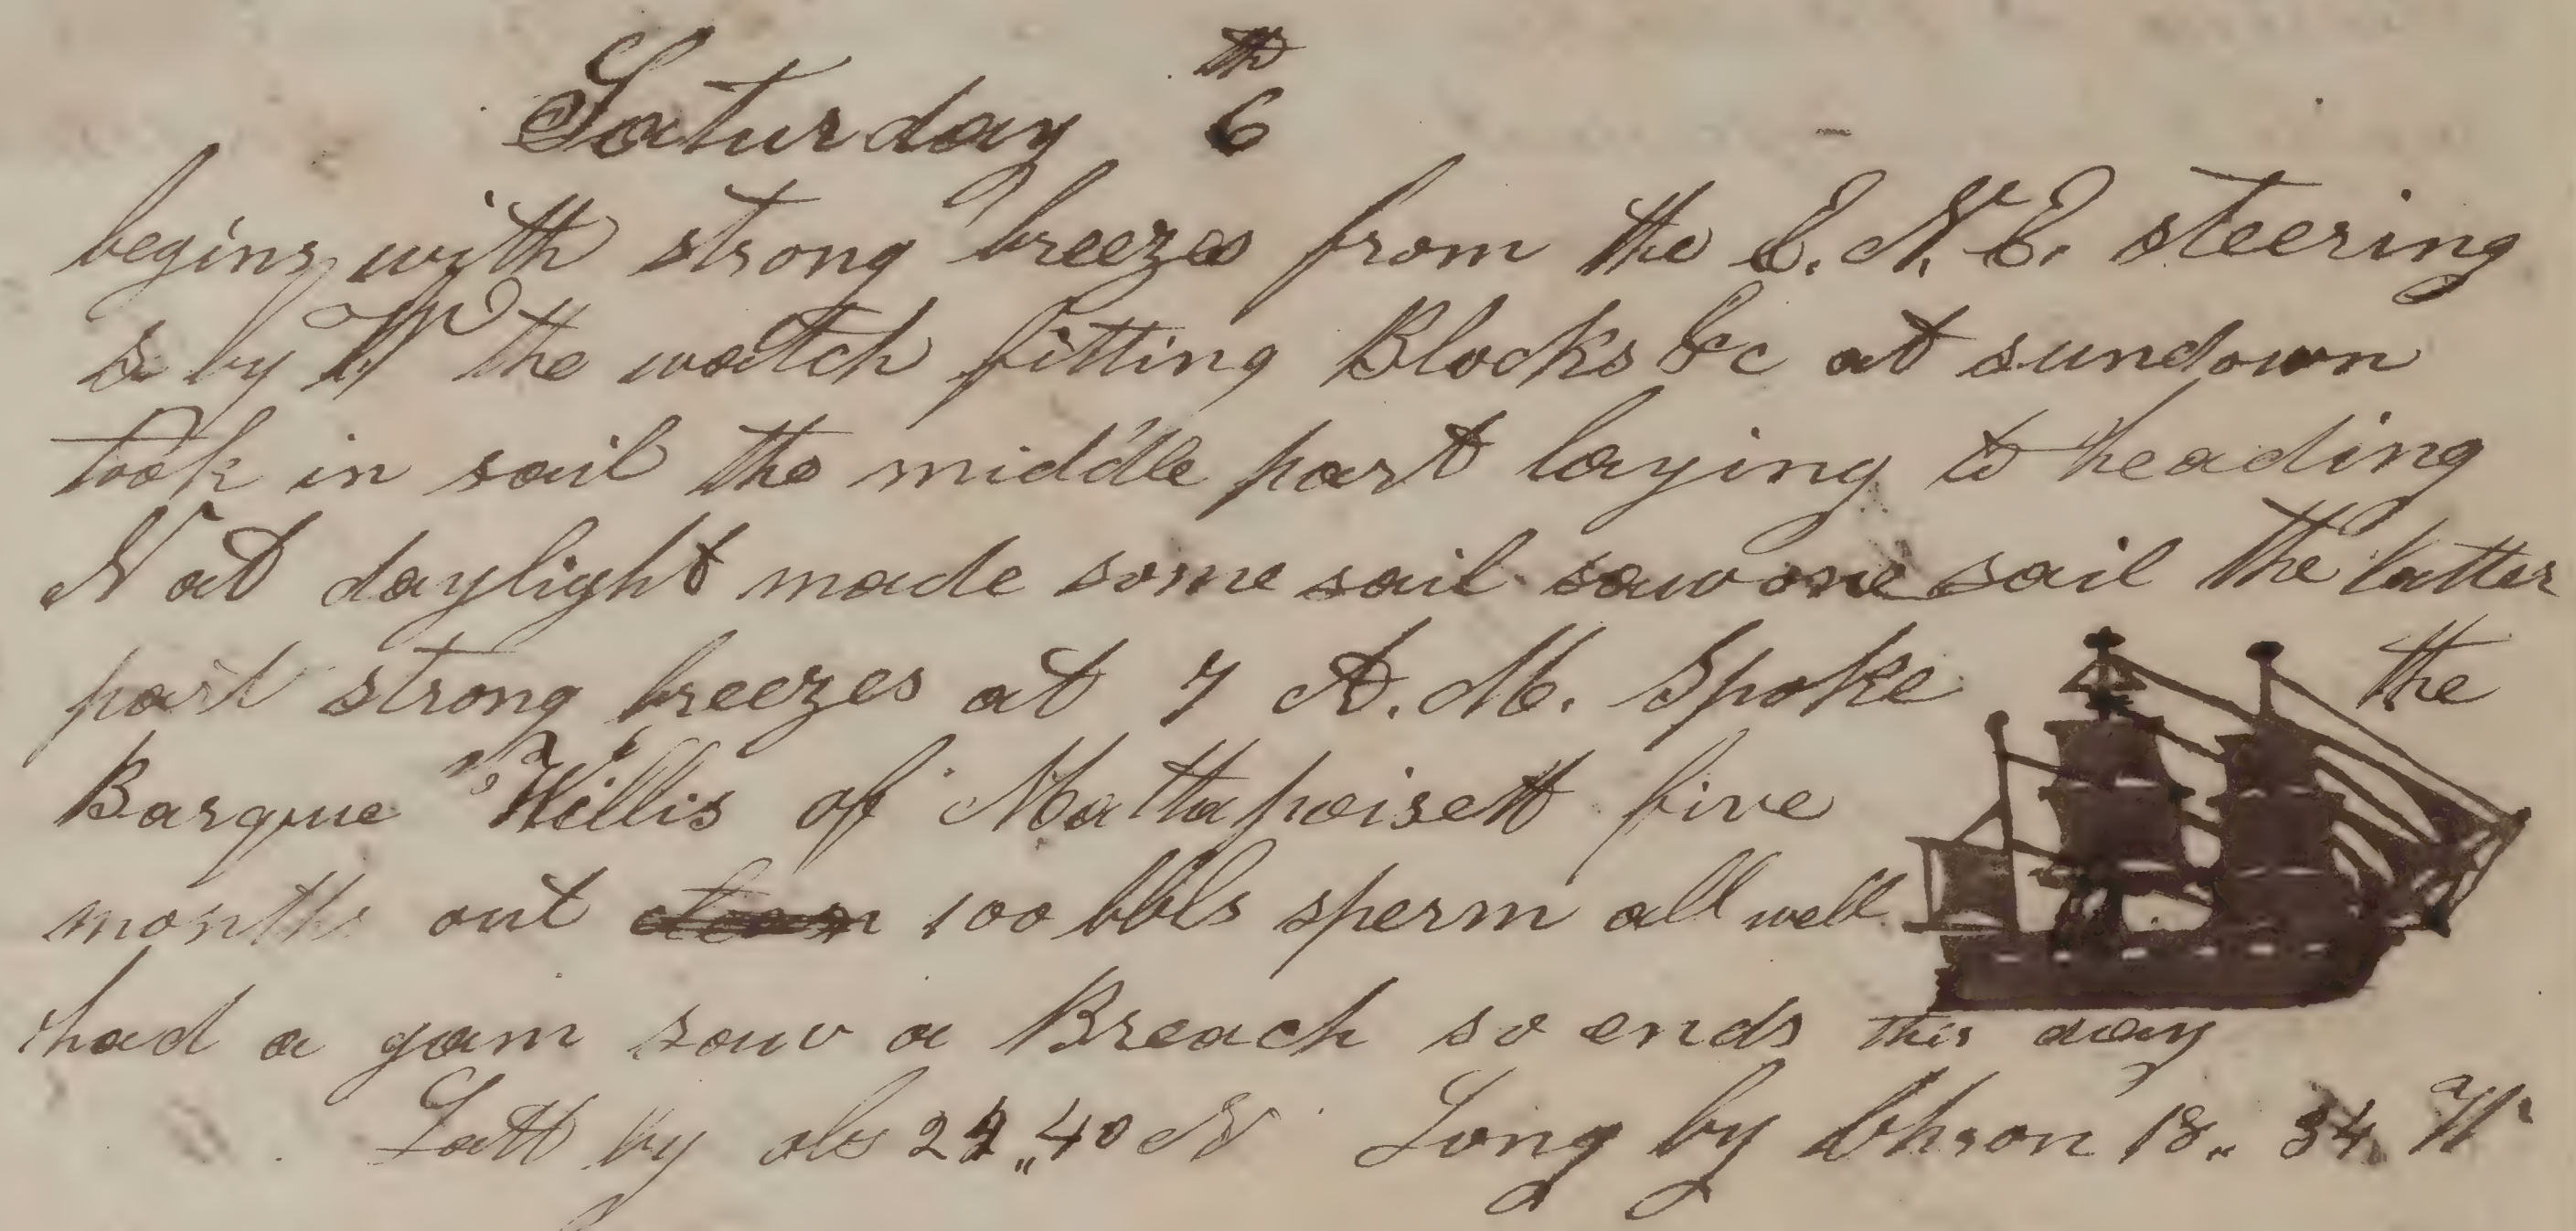 Saturday 6th
begins with strong breezes from the E. N. E. steering
S by W the watch fitting Blocks &c at sundown
took in sail the middle part laying to heading
N at daylight made some sail saw one sail the latter
part strong breezes at 7 A. M. Spoke the
Barque "Willis of Mattapoisett five
months out 100 bbls sperm all well
had a gam saw a Breach so ends this day
Latt by obs 24,,40 N Long by Chron 18,, 34 W